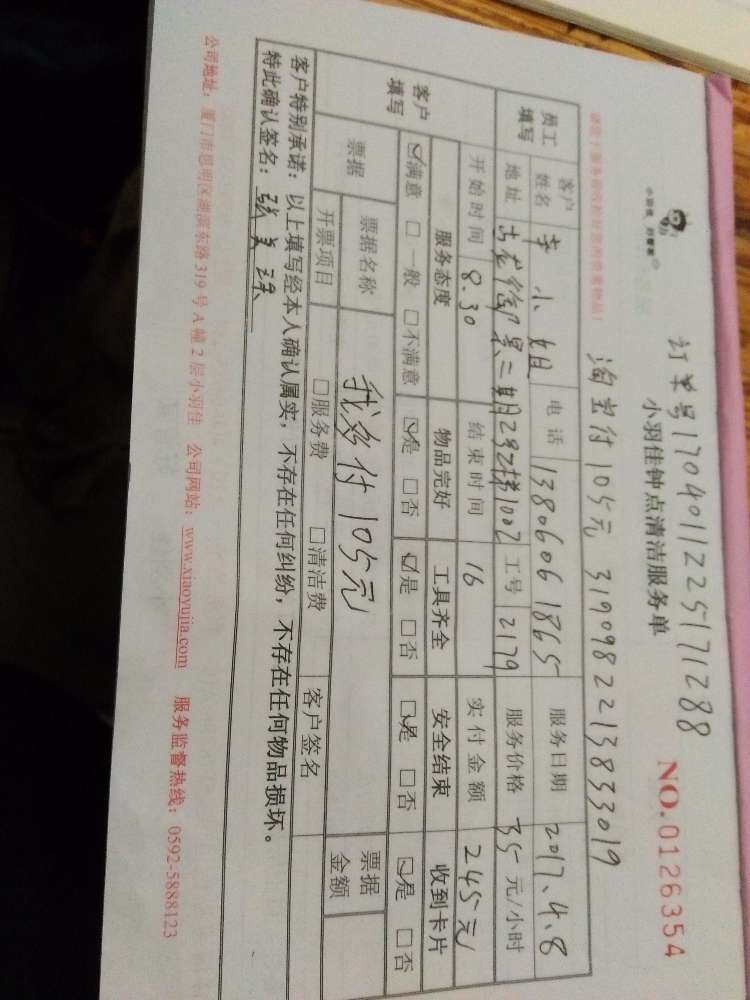 订单号1704011225171288
小羽佳钟点清洁服务单
NO.0126354
淘宝付105元 3190982213833019
员工填写
客户姓名 李小姐 电话 13806061865 服务日期 2017.4.8
地址 古龙御景二期2号2梯1002 工号 2179 服务价格 35元/小时
开始时间 8.30 结束时间 16 实付金额 245元
客户填写
服务态度 物品完好 工具齐全 安全结束 收到卡片
☑满意 □一般 □不满意 ☑是 □否 ☑是 □否 ☑是 □否 ☑是 □否
票据 票据名称 我多付105元 票据金额
开票项目 □服务费 □清洁费 客户签名
客户特别承诺:以上填写经本人确认属实,不存在任何纠纷,不存在任何物品损坏。
特此确认签名:
公司地址:厦门市思明区湖滨东路319号A幢2层小羽佳 公司网站:www.xiaoyujia.com 服务监督热线:0592-5888123